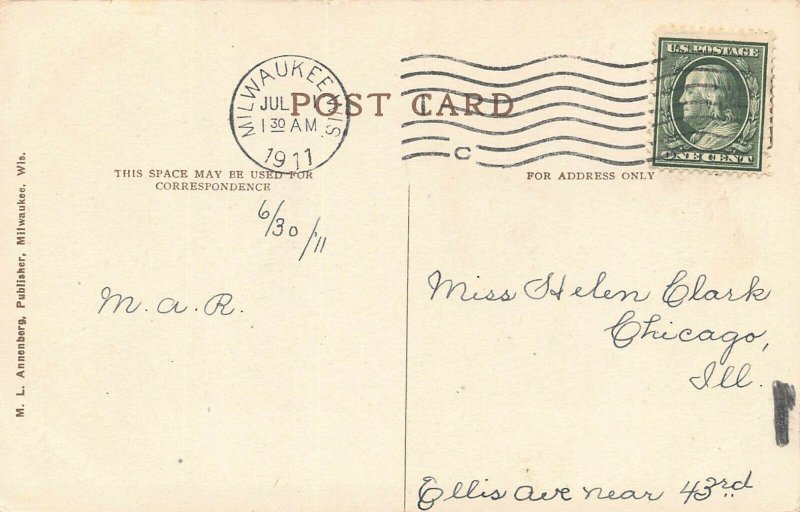 MILWAUKEE, WIS.
JUL 1
1 30 AM
1911
C
U.S. POSTAGE
ONE CENT
POST CARD
THIS SPACE MAY BE USED FOR
CORRESPONDENCE
FOR ADDRESS ONLY
6/30/11
M. a. R.
Miss Helen Clark
Chicago,
Ill.
Ellis Ave near 43rd
M. L. Annenberg, Publisher, Milwaukee, Wis.